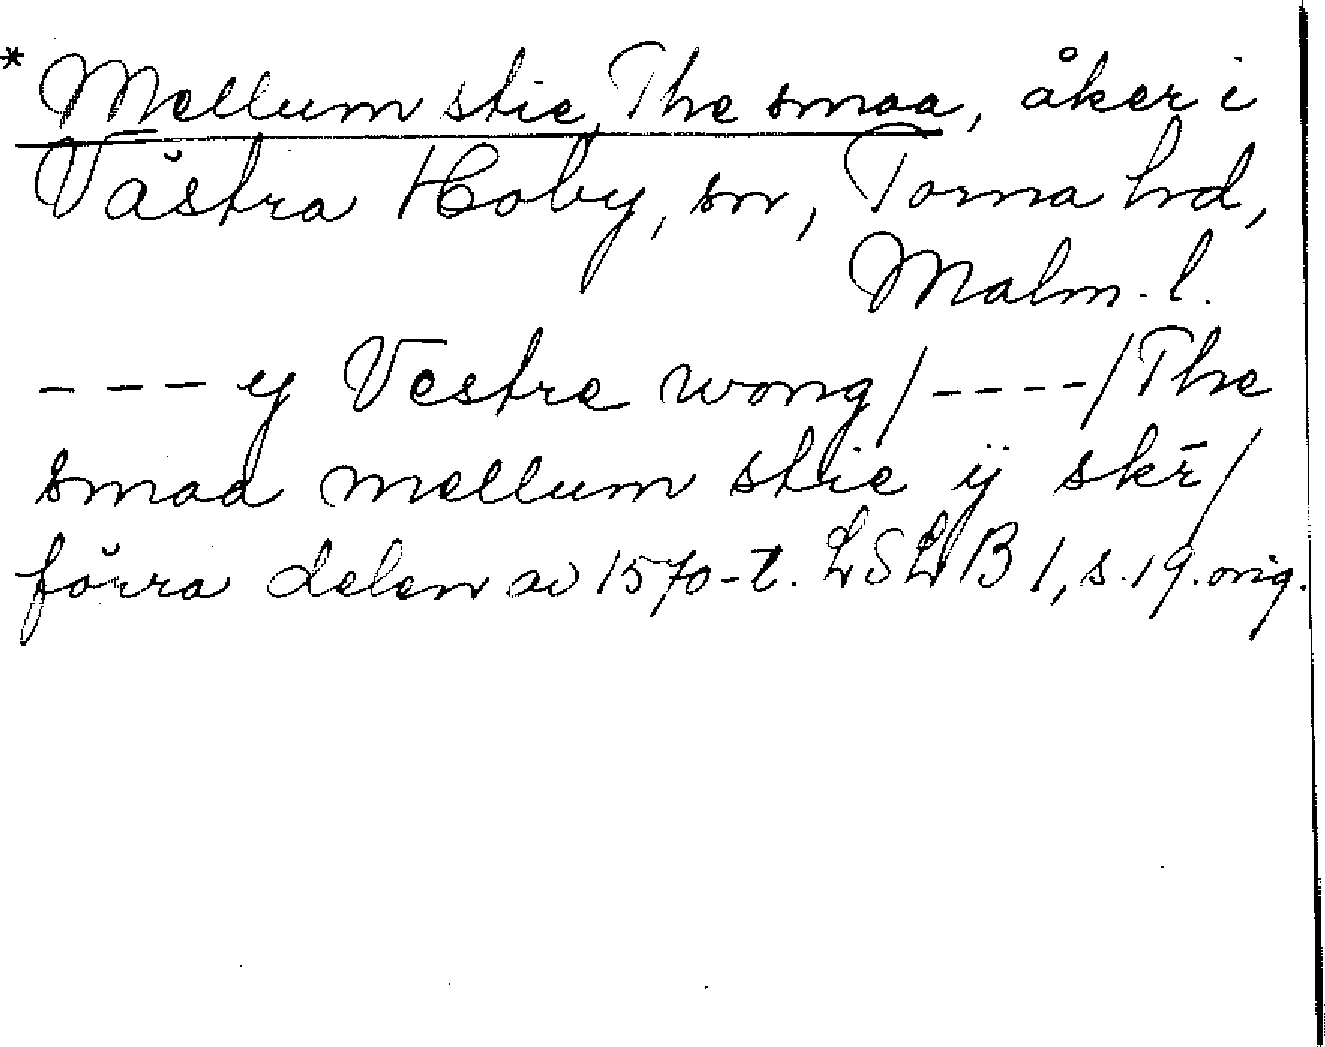 * Mellum stie, The smaa, åker i
Västra Hoby, sn, Torna hd,
Malm. l.
- - - y Vestre wong/----/The
smaa mellum stie ij skr̄/
förra delen av 1570-t. LSLB 1, s. 19. orig.